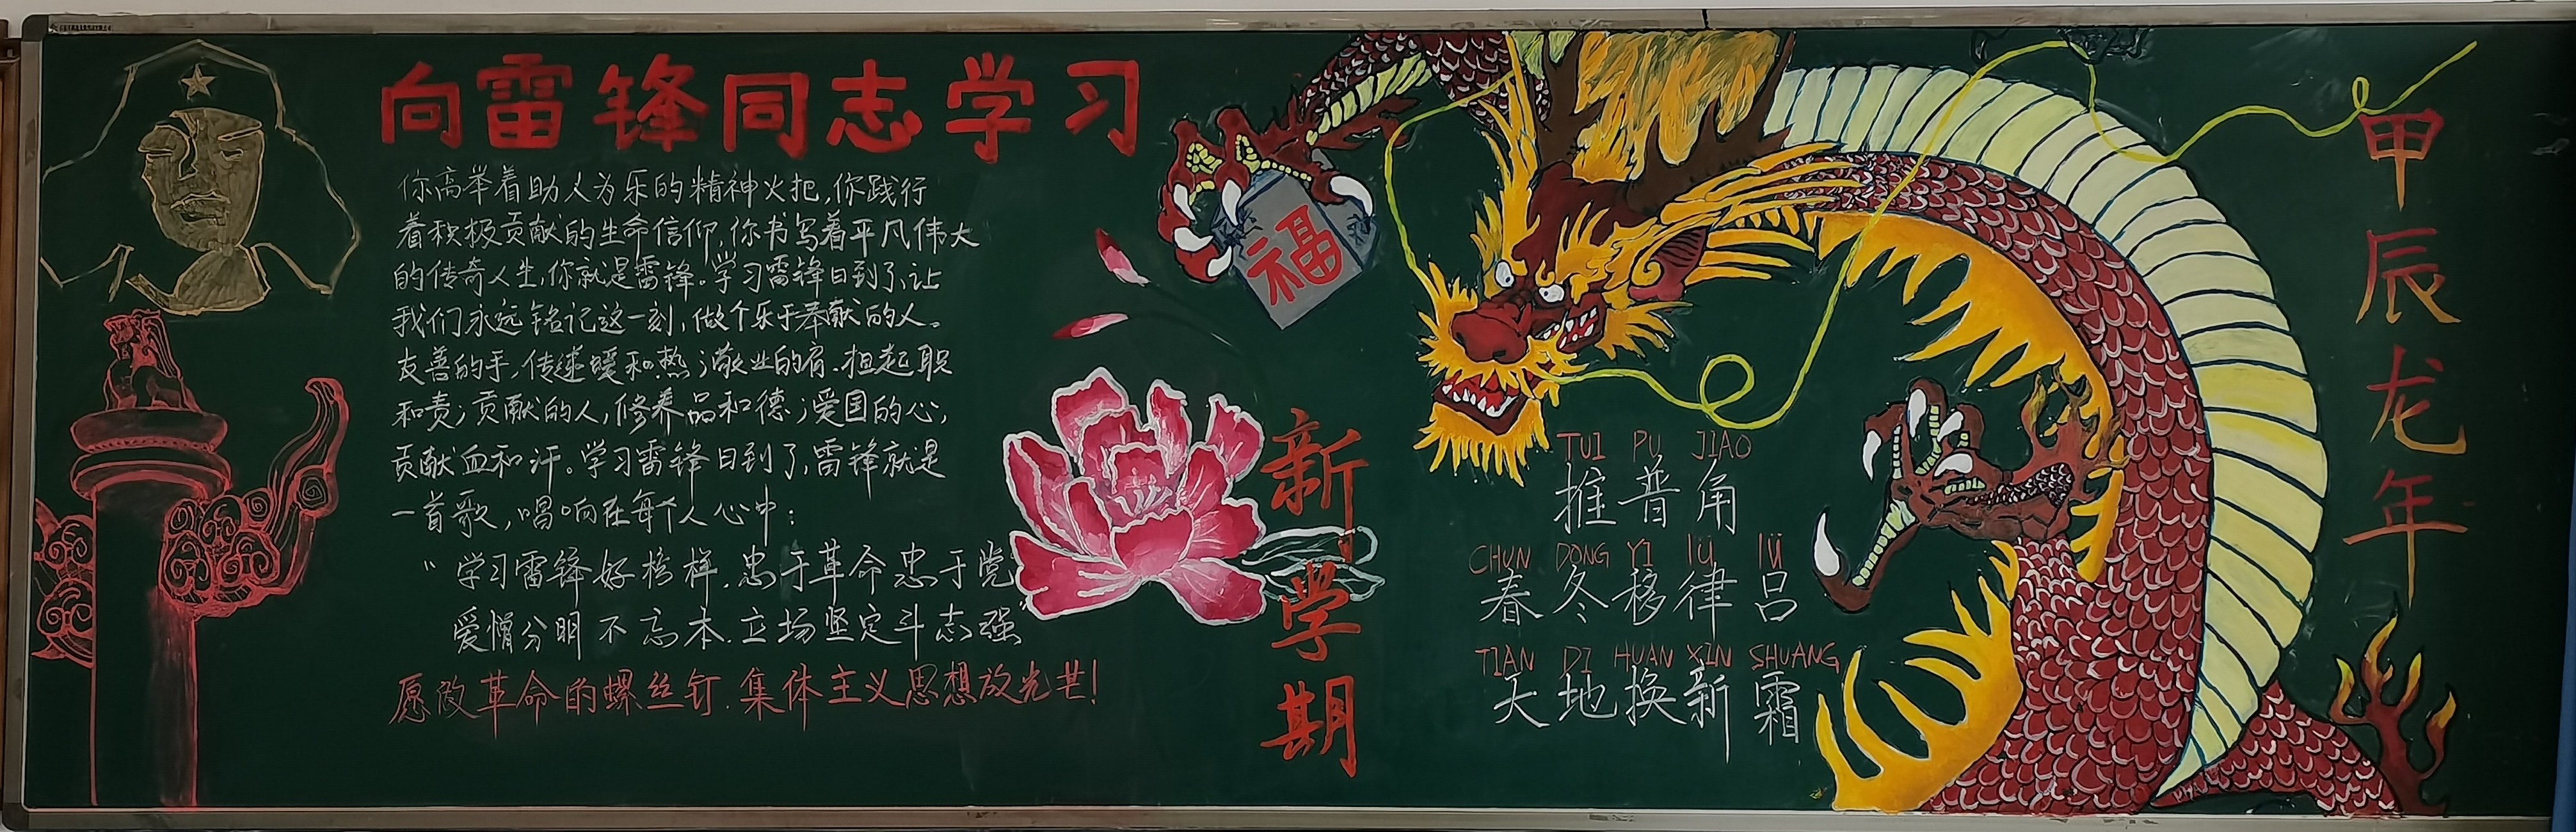 向雷锋同志学习
你高举着助人为乐的精神火把,你践行
着积极贡献的生命信仰,你书写着平凡伟大
的传奇人生,你就是雷锋。学习雷锋日到了,让
我们永远铭记这一刻,做个乐于奉献的人。
友善的手,传递暖和热;敬业的肩,担起职
和责;贡献的人,修养品和德;爱国的心,
贡献血和汗。学习雷锋日到了,雷锋就是
一首歌,唱响在每个人心中:
“学习雷锋好榜样,忠于革命忠于党
爱憎分明不忘本,立场坚定斗志强”
愿做革命的螺丝钉,集体主义思想放光芒!
福
新学期
TUI PU JIAO
推普角
CHUN DONG YI lü lü
春冬移律吕
TIAN DI HUAN XIN SHUANG
天地换新霜
甲辰龙年